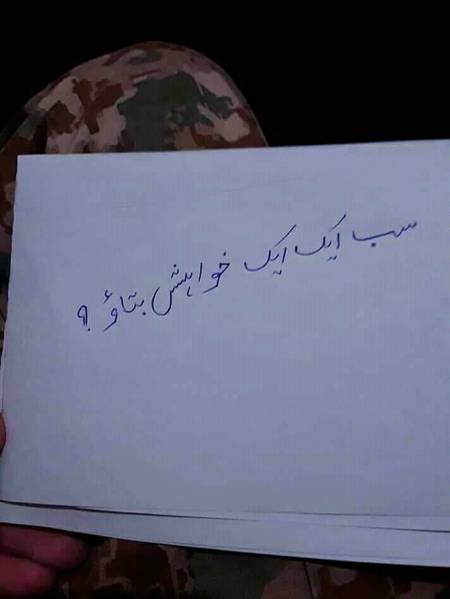 سب ایک ایک خواہش بتاؤ ؟